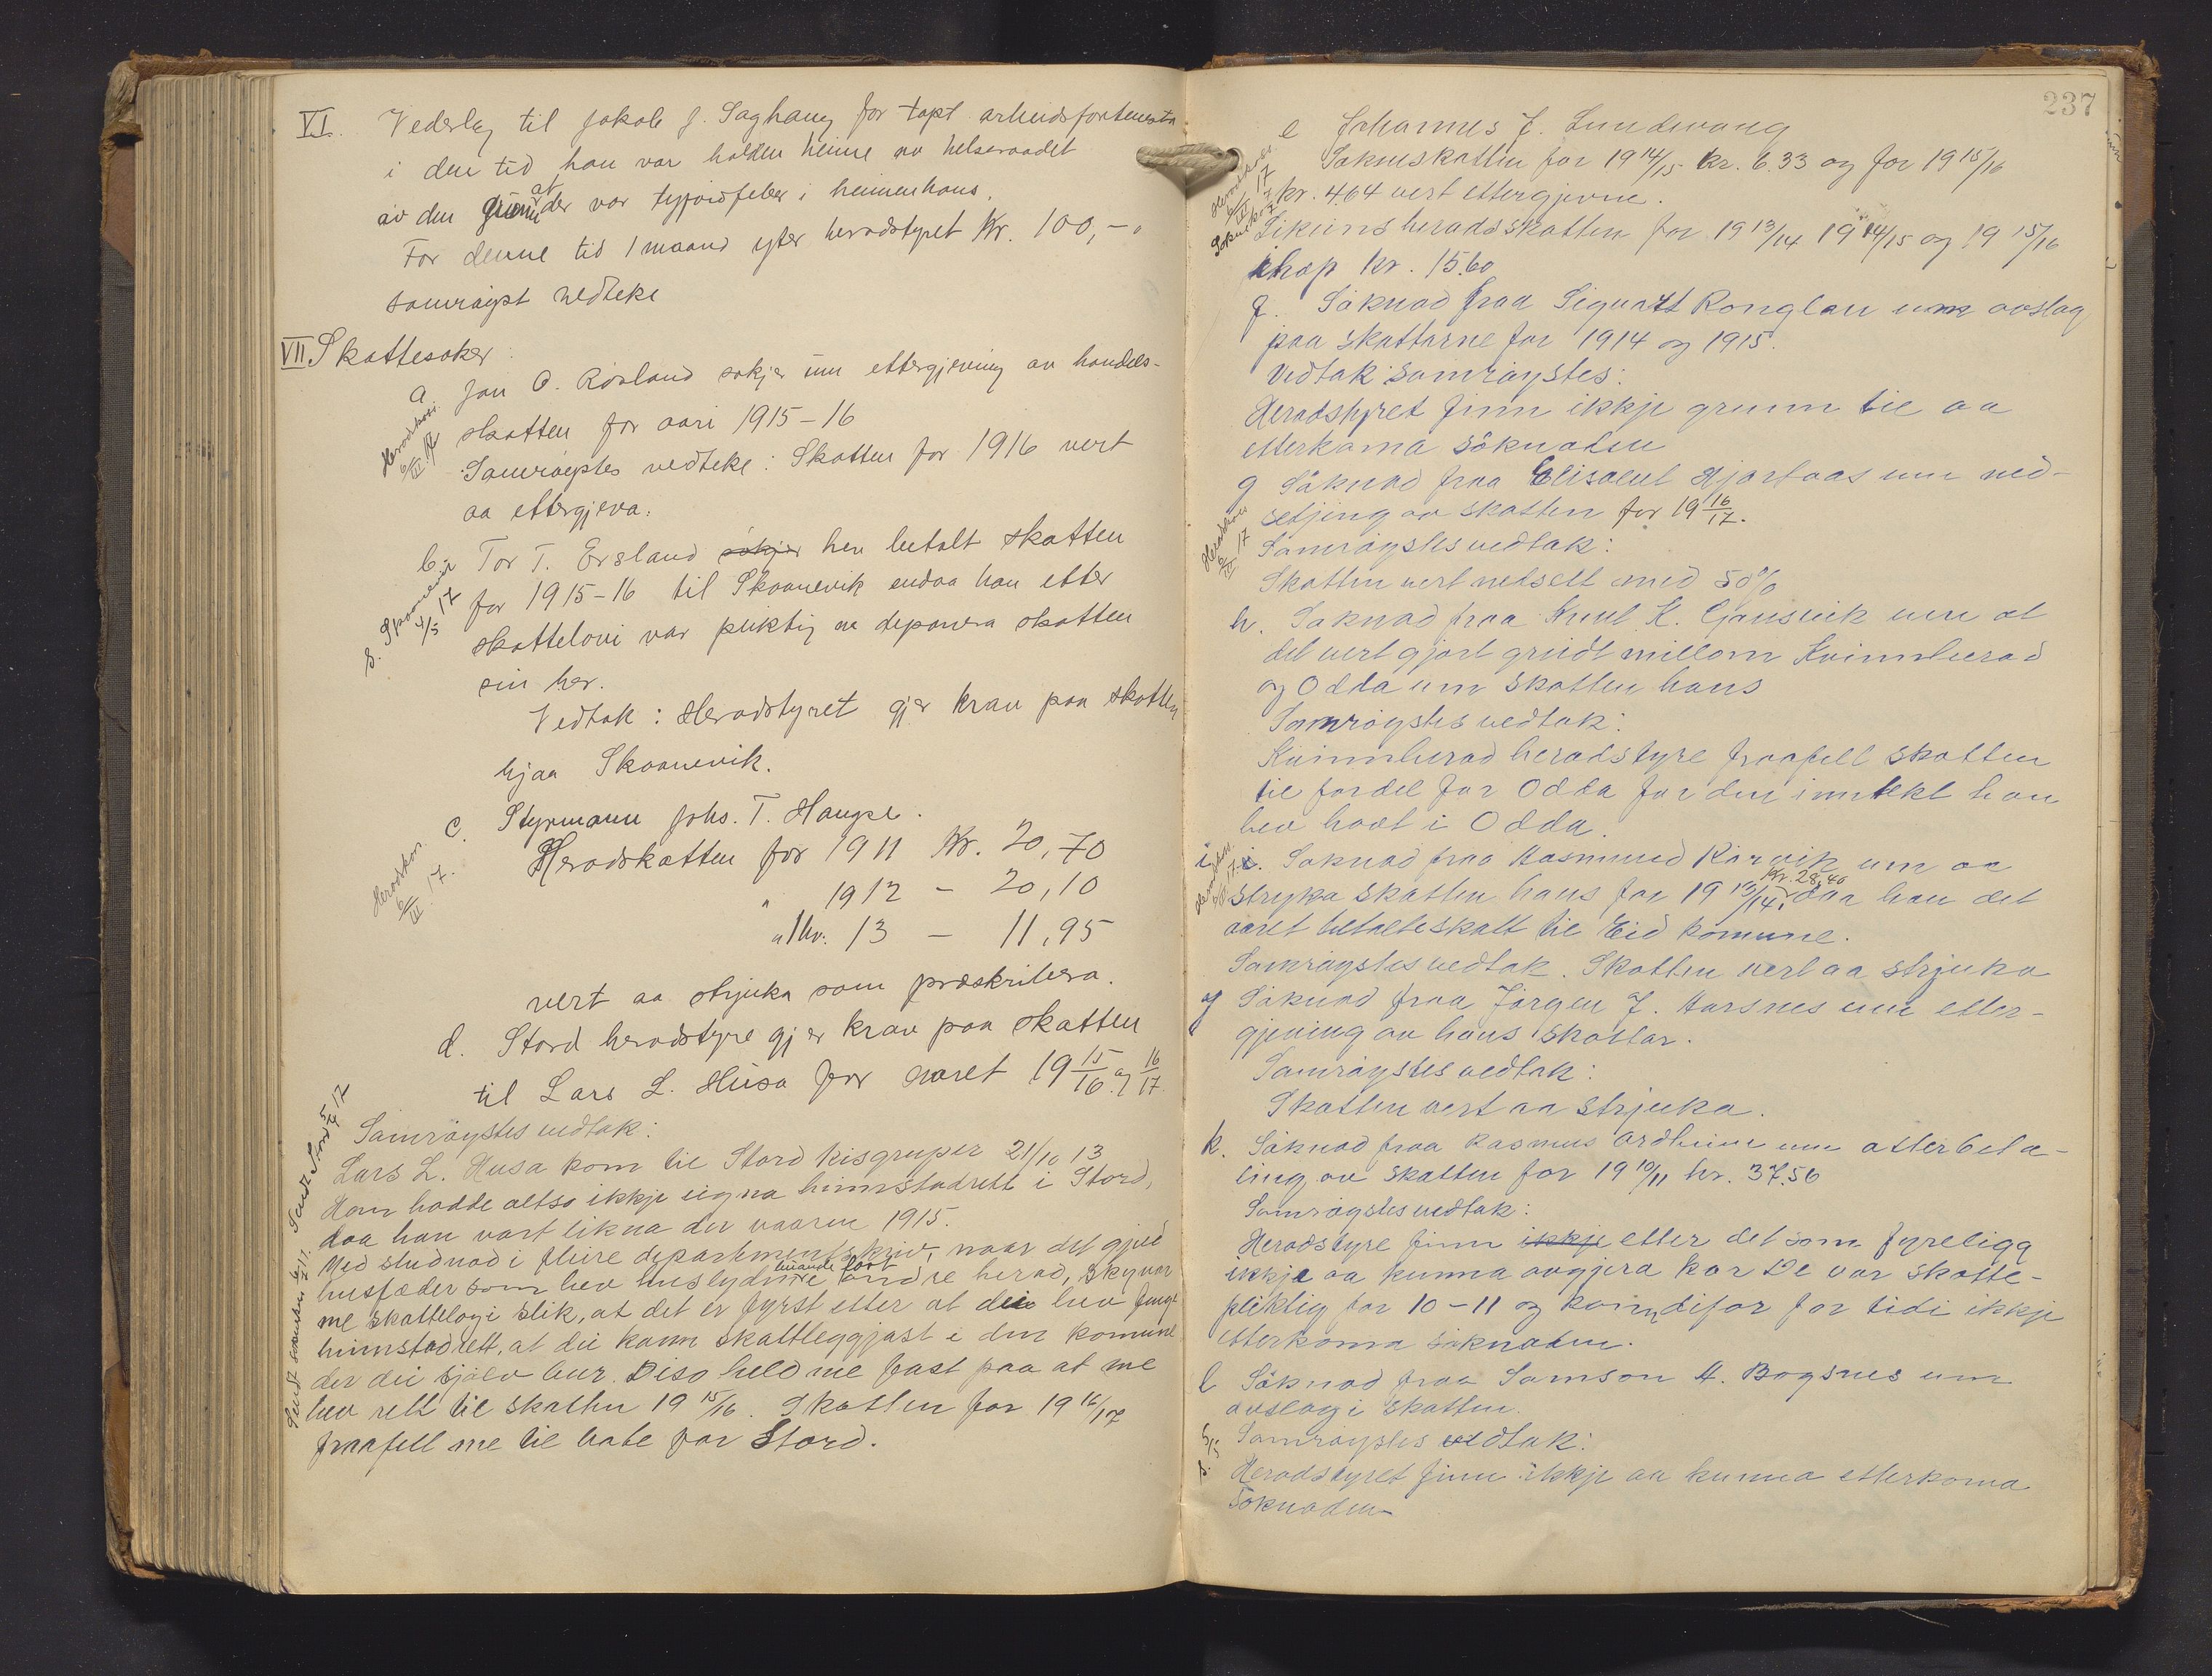 VI. Vederlag til Jakob J. Saghaug for tapt arbeidsforteneste
i den tid han var halden heime av helseraadet
av den grunn at der var tyfoidfeber i heimen hans.
For denne tid 1 maand yter heradstyret Kr. 100,-
samrøyst vedteke
VII Skattesaker:
a. Jon O. Røsland søkjer um ettergjeving av handels-
skatten for aari 1915-16
Samrøystes vedteke: Skatten for 1916 vert
aa ettergjeva.
Heradskas. 6/III 17
b. Tor T. Ersland søkjer hev betalt skatten
for 1915-16 til Skaanevik endaa han etter
skattelovi var pliktig aa deponera skatten
sin her.
S. Skaanevik 4/5 17
Vedtak: Heradstyret gjer krav paa skatten
hjaa Skaanevik.
c. Styrmann Johs. T. Hauge.
Heradskatten for 1911 Kr. 20,70
" 1912 - 20,10
" 1hv. 13 - 11,95
Heradskas. 6/III 17.
vert aa strjuka som præskribera.
d. Stord heradstyre gjer krav paa skatten
til Lars L. Husa for aaret 19 15/16 og 16/17.
Samrøystes vedtak:
Lars L. Husa kom til Stord kisgruper 21/10 13
Han hadde altso ikkje eigna heimstadrett i Stord,
daa han vart likna der vaaren 1915.
Med studnad i fleire departementskriv, naar det gjeld
husfæder som hev huslyden buande fast i andre herad, skynar
me skattelogi slik, at det er fyrst etter at dei hev fenge
heimstadrett, at dei kann skattleggjast i den komune
der dei sjølv bur. Diso held me fast paa at me
hev rett til skatten 19 15/16. Skatten for 19 16/17
fraafell me til bate for Stord.
237
e Johannes J. Lundevang
Sokneskatten for 19 14/15 kr. 6.33 og for 19 15/16
kr. 4.64 vert ettergjevne.
Likeins heradsskatten for 19 13/14 19 14/15 og 19 15/16
ihop kr. 15.60
f. Søknad fraa Sigvart Ronglan um avslag
paa skattarne for 1914 og 1915.
Vedtak samrøystes:
Heradstyret finn ikkje grunn til aa
etterkoma søknaden
g Søknad fraa Elisaeus Hjartaas um ned-
setjing av skatten for 19 16/17.
Samrøystes vedtak:
Skatten vert nedsett med 50%
h. Søknad fraa Knut K. Gausvik um at
det vert gjort greidt millom Kvinnherad
og Odda um skatten hans
Samrøystes vedtak:
Kvinnherad heradstyre fraafell skatten
til fordel for Odda for den inntekt han
hev havt i Odda.
i. Søknad fraa Aasmund Rørvik um aa
stryka skatten hans for 19 13/14, kr. 28,40 daa han det
aaret betalte skatt til Eid komune.
Samrøystes vedtak. Skatten vert aa strjuka
j Søknad fraa Jørgen J. Aarsnes um etter-
gjeving av hans skattar.
Samrøystes vedtak:
Skatten vert aa strjuka.
k. Søknad fraa Rasmus Ardheim um atterbeta-
ling av skatten for 19 10/11 kr. 37.56
Samrøystes vedtak:
Heradstyre finn ikkje etter det som fyreligg
ikkje aa kunna avgjera kor De var skatte-
pliktig for 10-11 og kann difor for tidi ikkje
etterkoma søknaden.
l Søknad fraa Samson A. Bogsnes um
avslag i skatten.
Samrøystes vedtak:
Heradstyret finn ikkje aa kunna etterkoma
søknaden